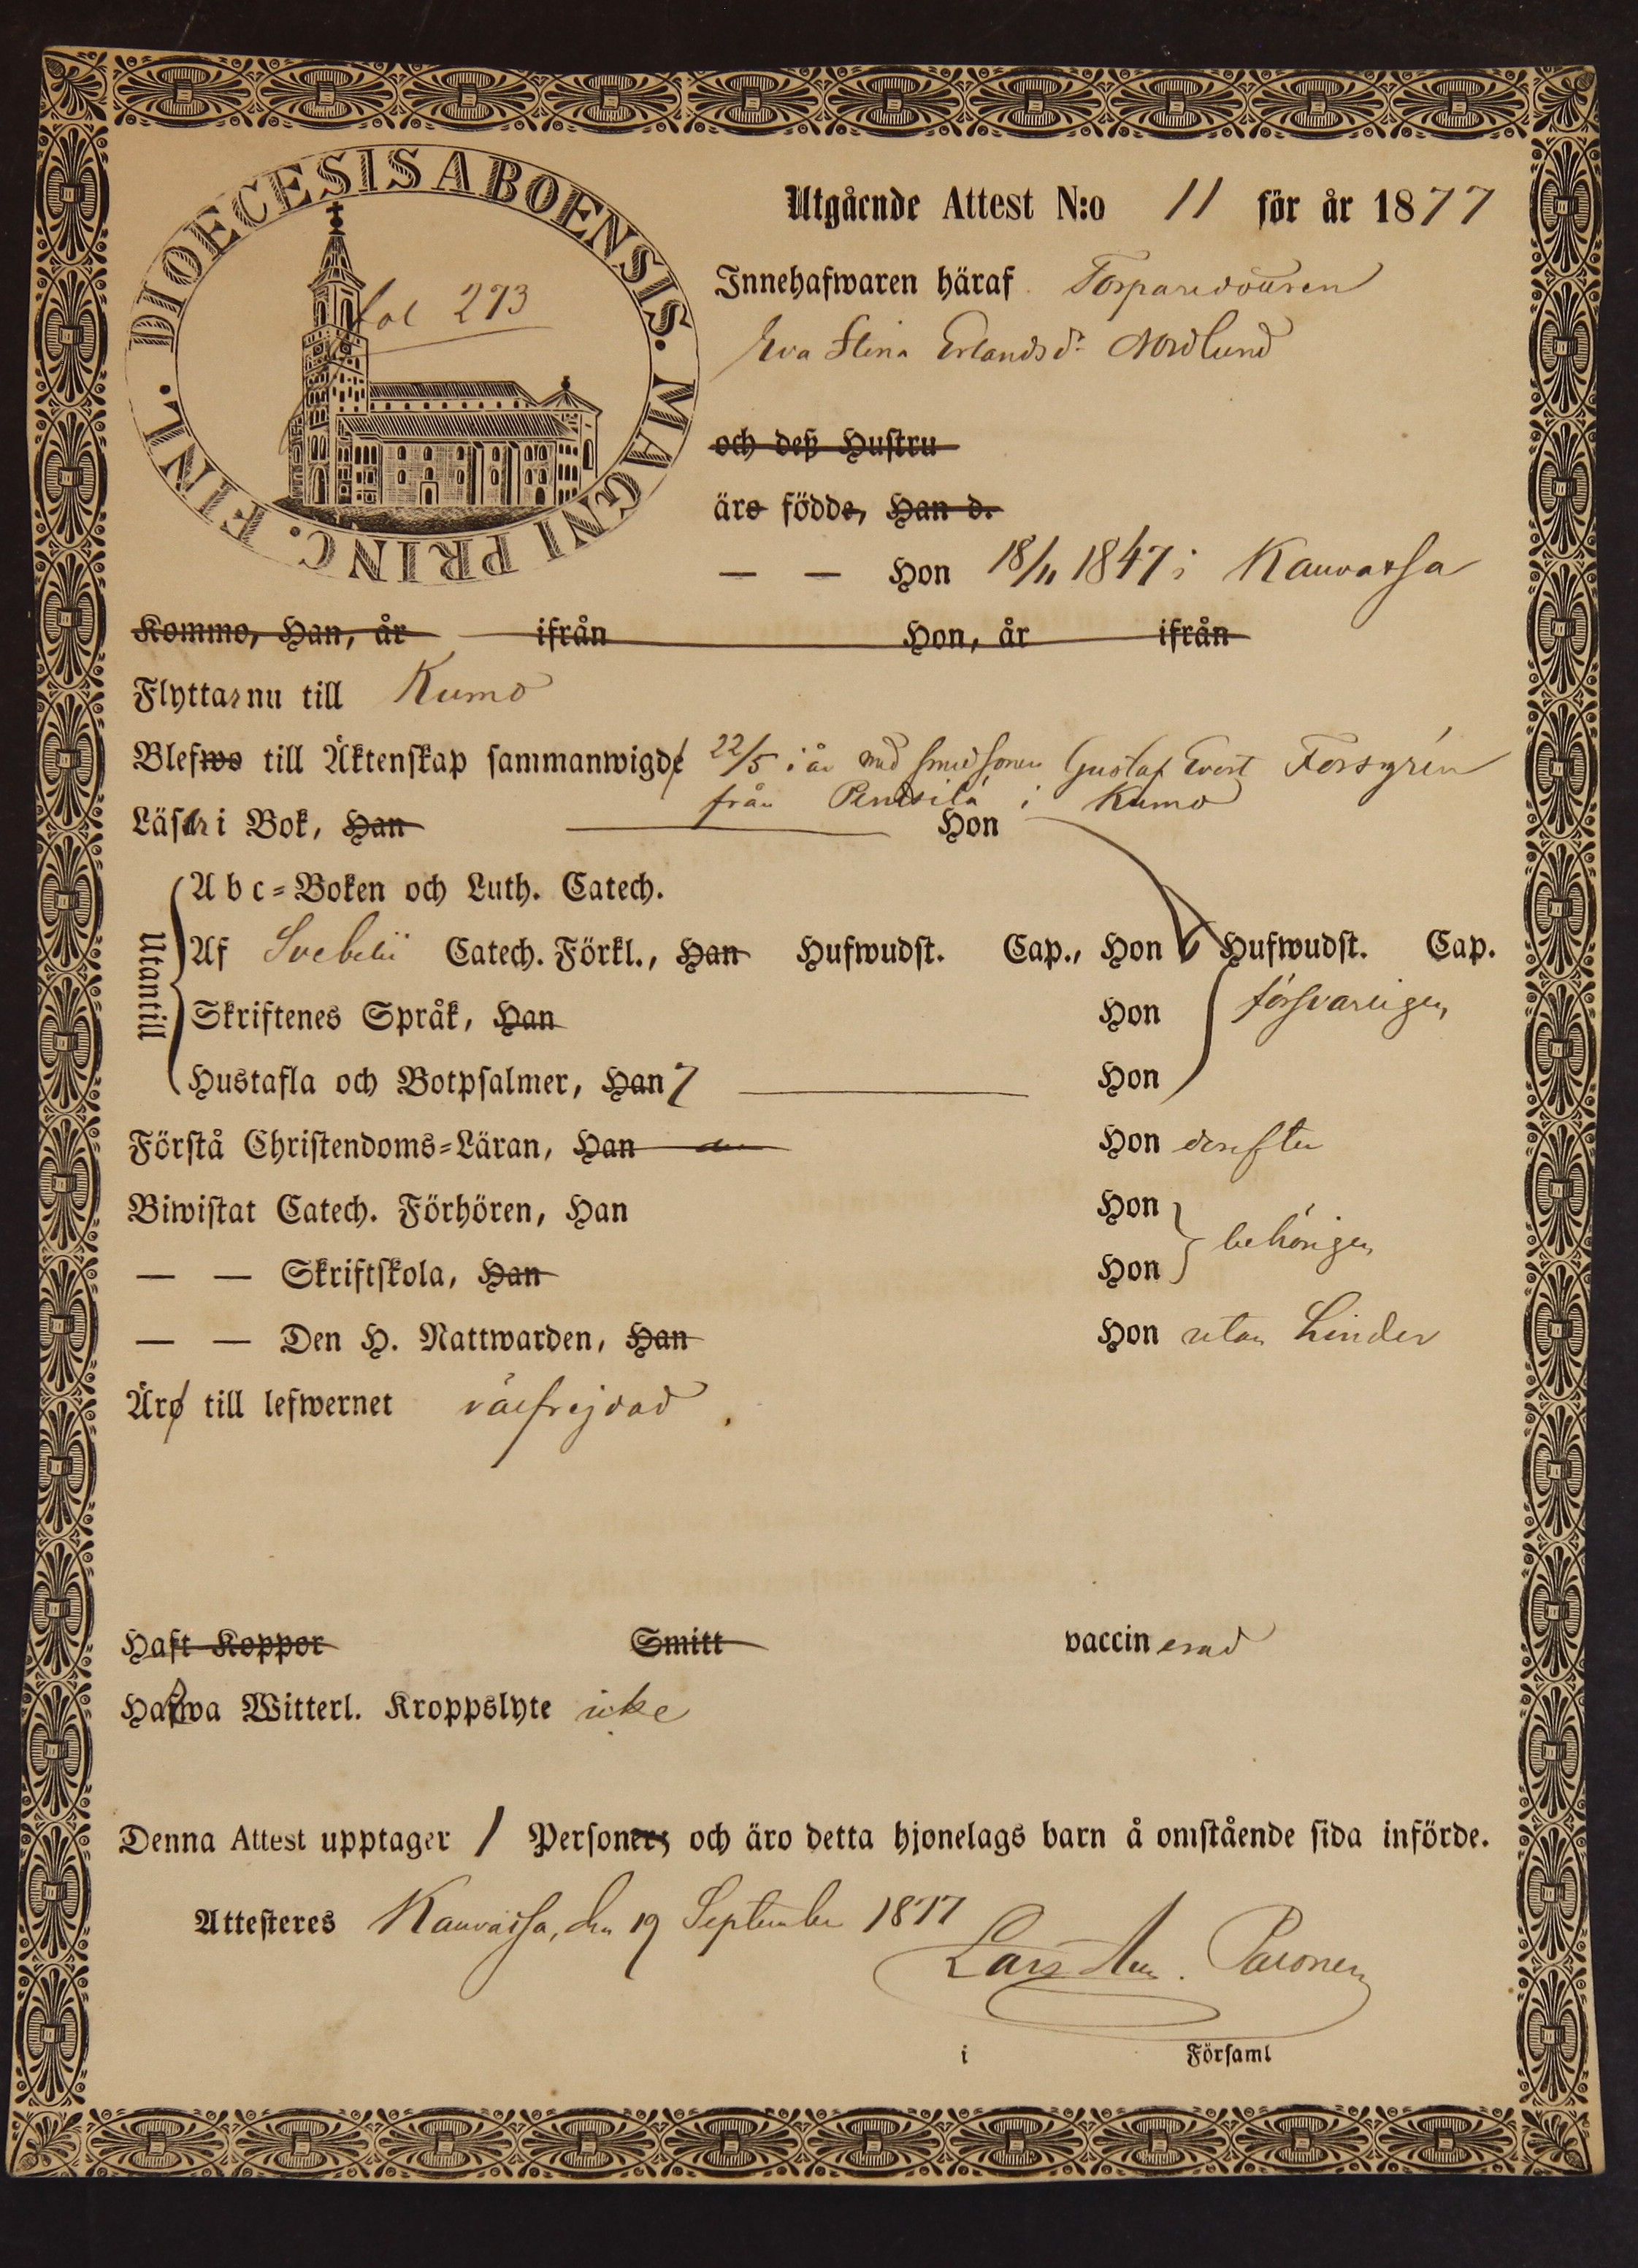 DIOECESIS ABOENSIS. MAGNI PRINC. FINL.
fol 273
Utgående Attest N:o 11 för år 1877
Innehafwaren häraf Torparedottren
Eva Stina Erlandsdr Nordlund
och deß Hustru
äro födde, Han d.
— — Hon 18/11 1847 i Kauvatsa
Kommo, Han, år ifrån Hon, år ifrån
Flyttar nu till Kumo
Blefwo till Äktenskap sammanwigde 22/5 i år med smedsonen Gustaf Evert Forsgrén
från i Kumo
Läser i Bok, Han Hon
Utantill
Abc-Boken och Luth. Catech.
Af Svebelii Catech. Förkl., Han Hufwudst. Cap., Hon Hufwudst. Cap.
Skriftenes Språk, Han Hon försvarligen
Hustafla och Botpsalmer, Han Hon
Förstå Christendoms-Läran, Han Hon derefter
Biwistat Catech. Förhören, Han Hon
behörigen
— — Skriftskola, Han Hon
— — Den H. Nattwarden, Han Hon utan hinder
Äro till lefwernet välfrejdad.
Haft Koppor Smitt vaccinerad
Hafwa Witterl. Kroppslyte icke
Denna Attest upptager 1 Personer; och äro detta hjonelags barn å omstående sida införde.
Attesteres Kauvatsa, den 19 September 1877
Lars
i Församl